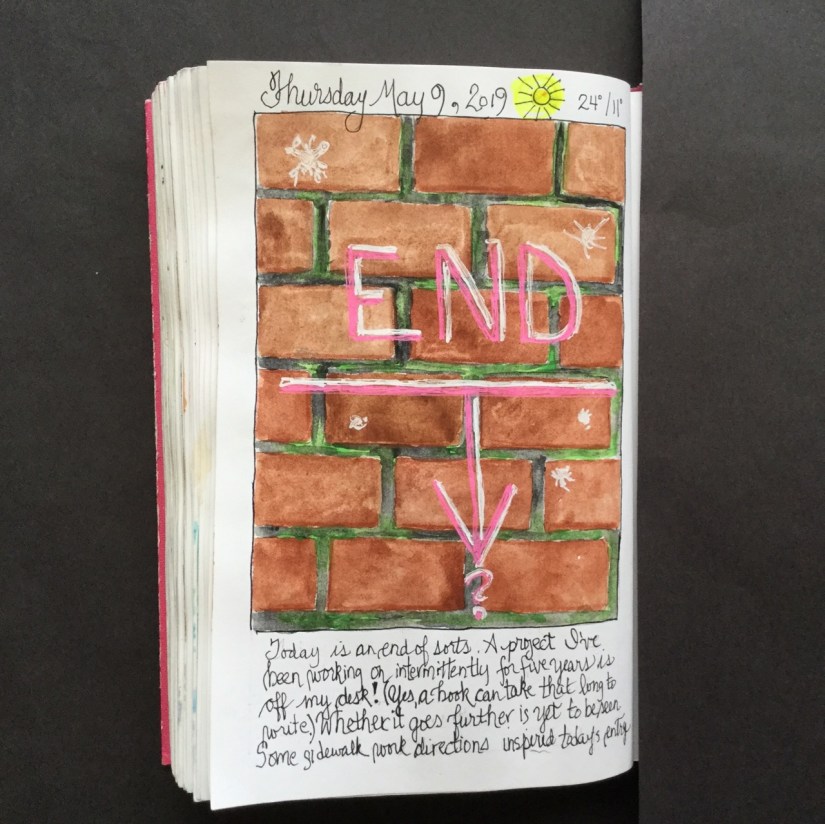 Thursday May 9, 2019 24°/11°
END
?
Today is an end of sorts. A project I've
been working on intermittently for five years is
off my desk! (Yes, a book can take that long to
write.) Whether it goes further is yet to be seen
Some sidewalk work directions inspired today's entry